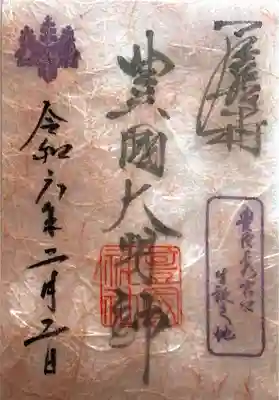 尾張中村
豊臣秀吉公
生誕之地
豊國大明神
令和六年二月二日